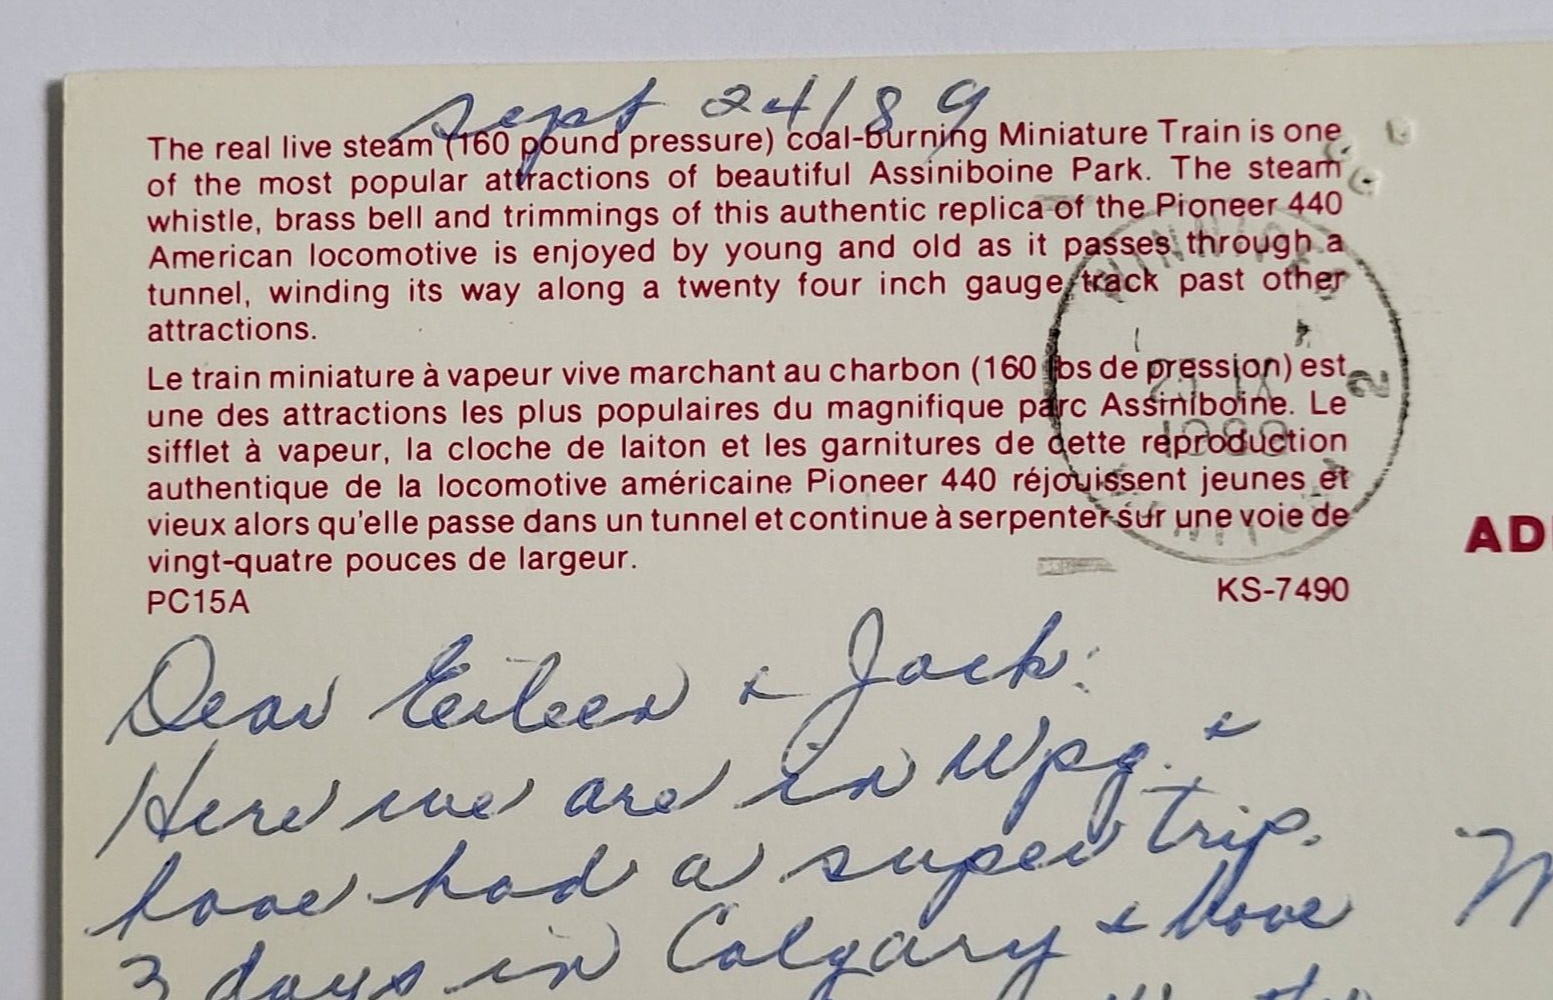 Sept 24/89
The real live steam (160 pound pressure) coal-burning Miniature Train is one
of the most popular attractions of beautiful Assiniboine Park. The steam
whistle, brass bell and trimmings of this authentic replica of the Pioneer 440
American locomotive is enjoyed by young and old as it passes through a
tunnel, winding its way along a twenty four inch gauge track past other
attractions.
Le train miniature à vapeur vive marchant au charbon (160 lbs de pression) est
une des attractions les plus populaires du magnifique parc Assiniboine. Le
sifflet à vapeur, la cloche de laiton et les garnitures de cette reproduction
authentique de la locomotive américaine Pioneer 440 réjouissent jeunes et
vieux alors qu'elle passe dans un tunnel et continue à serpenter sur une voie de
vingt-quatre pouces de largeur.
PC15A
KS-7490
WINNIPEG
2
MANITOBA
Dear Eileen & Jack:
Here we are in Wpg. &
have had a super trip.
3 days in Calgary & have